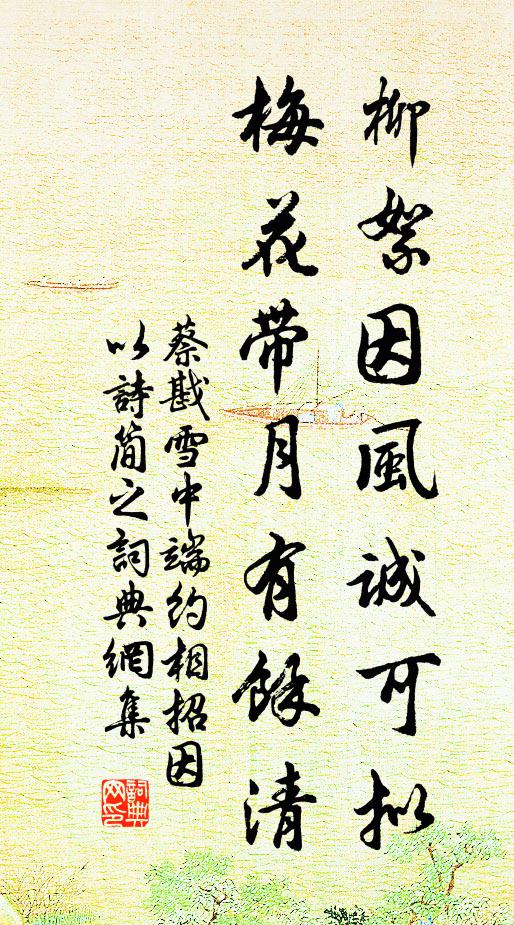 柳絮因風誠可拟
梅花带月有餘清
蔡戡雪中端約相招因
以詩簡之詞典網集
詞典
网印